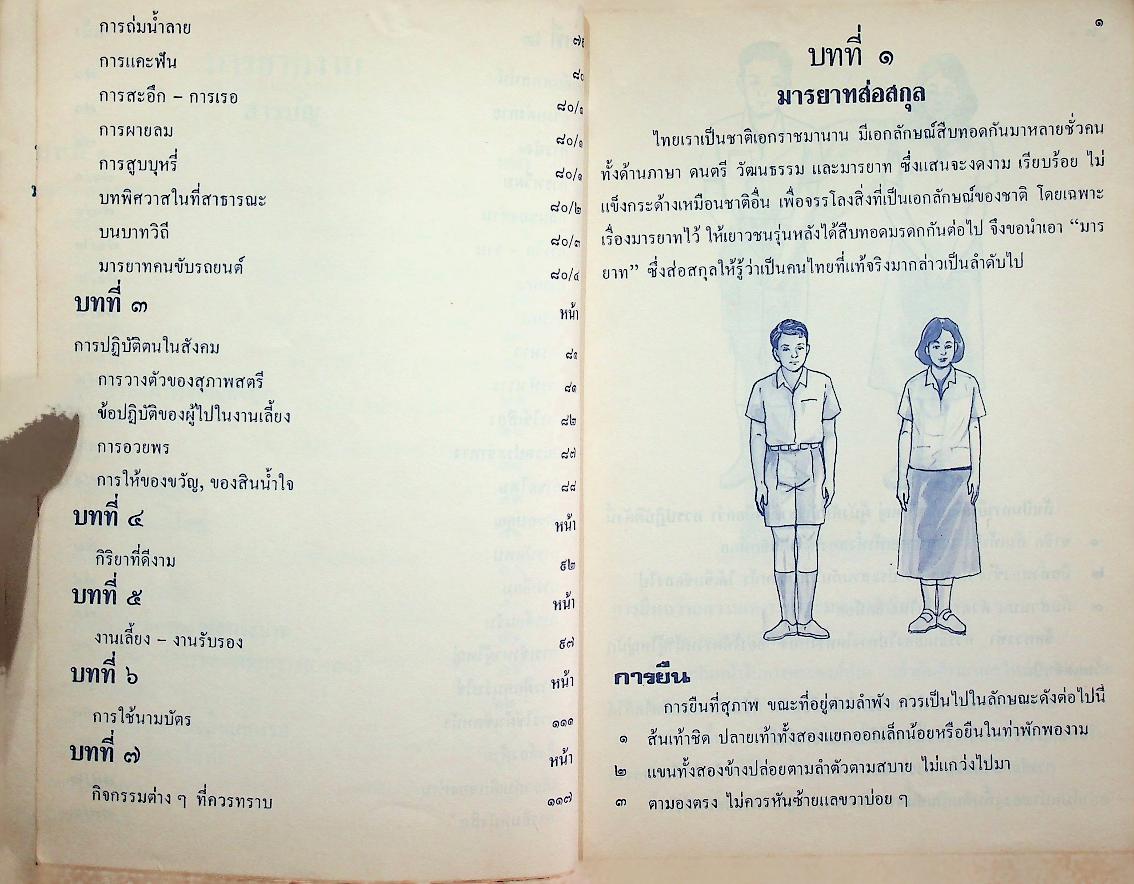 การถ่มน้ำลาย
การแคะฟัน
การสะอึก – การเรอ ๘๐/๑
การผายลม ๘๐/๑
การสูบบุหรี่ ๘๐/๑
บทพิศวาสในที่สาธารณะ ๘๐/๒
บนบาทวิถี ๘๐/๓
มารยาทคนขับรถยนต์ ๘๐/๔
บทที่ ๓ หน้า
การปฏิบัติตนในสังคม ๘๑
การวางตัวของสุภาพสตรี ๘๑
ข้อปฏิบัติของผู้ไปในงานเลี้ยง ๘๒
การอวยพร ๘๗
การให้ของขวัญ, ของสินน้ำใจ ๘๘
บทที่ ๔ หน้า
กิริยาที่ดีงาม ๙๒
บทที่ ๕ หน้า
งานเลี้ยง – งานรับรอง ๙๗
บทที่ ๖ หน้า
การใช้นามบัตร ๑๑๑
บทที่ ๗ หน้า
กิจกรรมต่าง ๆ ที่ควรทราบ ๑๑๗
๑
บทที่ ๑
มารยาทส่อสกุล
ไทยเราเป็นชาติเอกราชมานาน มีเอกลักษณ์สืบทอดกันมาหลายชั่วคน
ทั้งด้านภาษา ดนตรี วัฒนธรรม และมารยาท ซึ่งแสนจะงดงาม เรียบร้อย ไม่
แข็งกระด้างเหมือนชาติอื่น เพื่อจรรโลงสิ่งที่เป็นเอกลักษณ์ของชาติ โดยเฉพาะ
เรื่องมารยาทไว้ ให้เยาวชนรุ่นหลังได้สืบทอดมรดกกันต่อไป จึงขอนำเอา “มาร
ยาท” ซึ่งส่อสกุลให้รู้ว่าเป็นคนไทยที่แท้จริงมากล่าวเป็นลำดับไป
การยืน
การยืนที่สุภาพ ขณะที่อยู่ตามลำพัง ควรเป็นไปในลักษณะดังต่อไปนี้
๑ ส้นเท้าชิด ปลายเท้าทั้งสองแยกออกเล็กน้อยหรือยืนในท่าพักพองาม
๒ แขนทั้งสองข้างปล่อยตามลำตัวตามสบาย ไม่แกว่งไปมา
๓ ตามองตรง ไม่ควรหันซ้ายแลขวาบ่อย ๆ